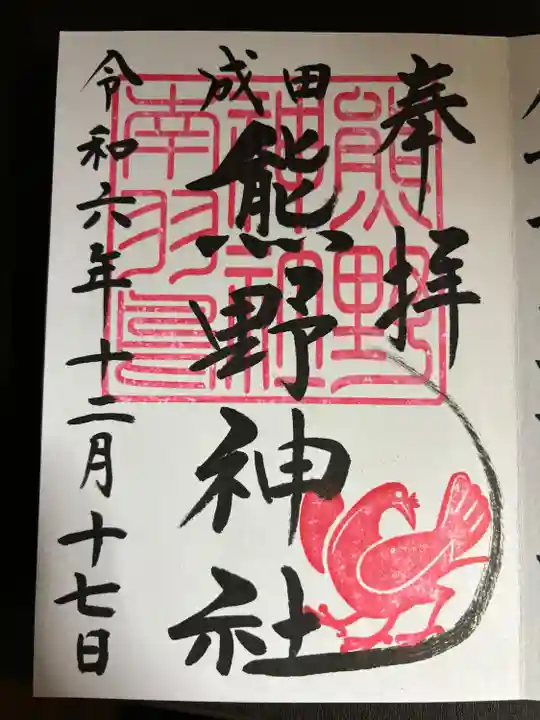 奉拝
成田
熊野神社
令和六年十二月十七日
熊野
神社